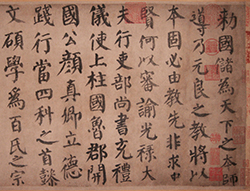 勅國儲為天下之本師
導乃元良之教將以
本固必由教先非求忠
賢何以審諭光祿大
夫行吏部尚書充禮
儀使上柱國魯郡開
國公顏真卿立德
踐行當四科之首懿
文碩學為百氏之宗